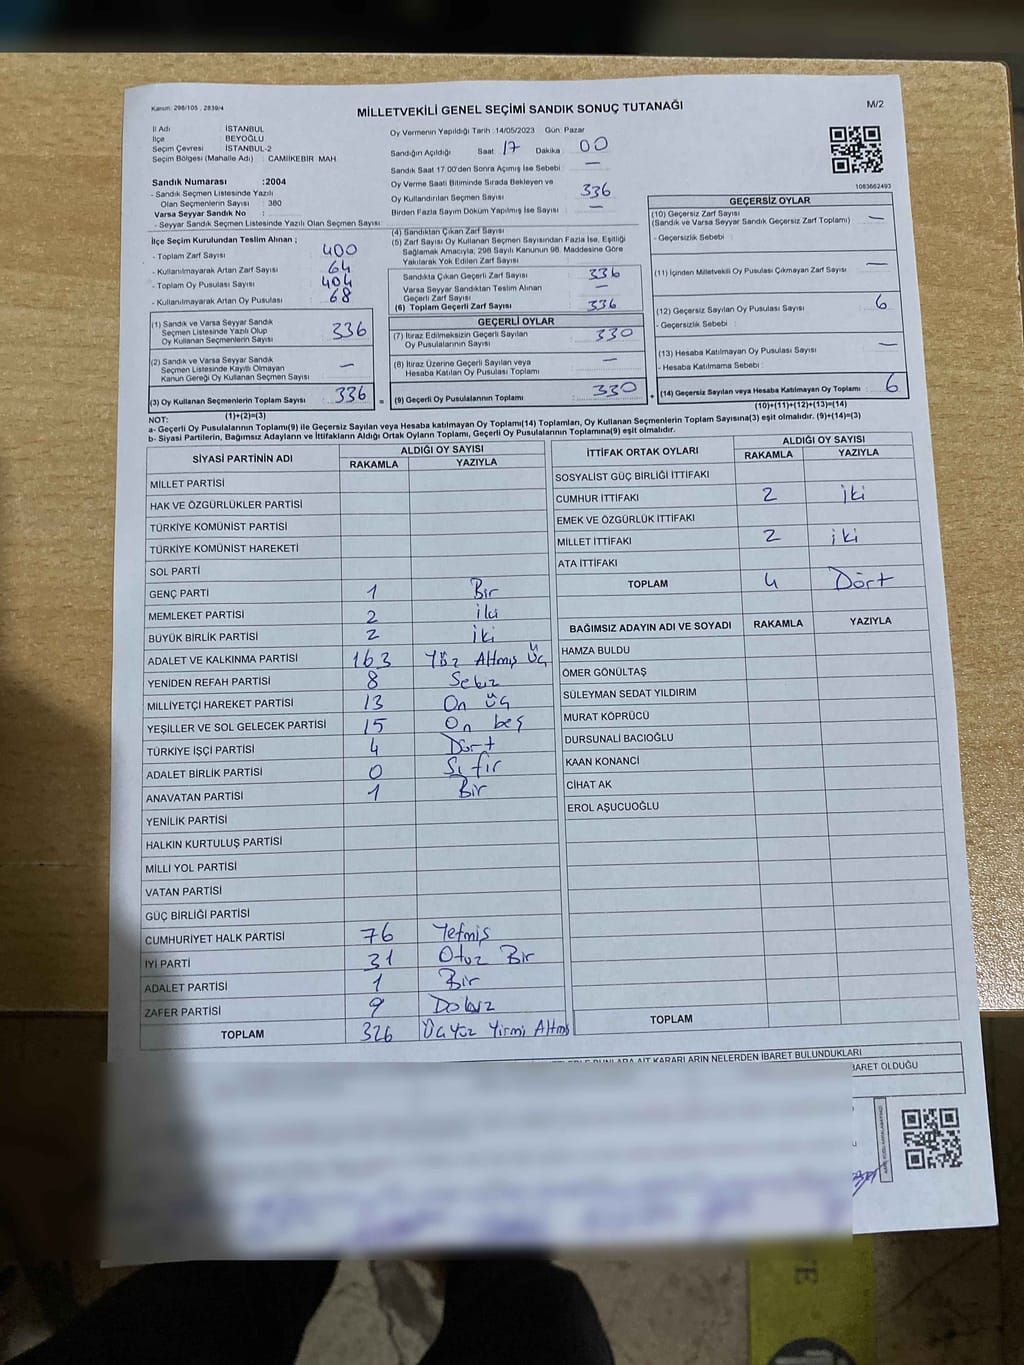 Kanun: 298/105 , 2839/4
MİLLETVEKİLİ GENEL SEÇİMİ SANDIK SONUÇ TUTANAĞI
M/2
İl Adı : İSTANBUL
İlçe : BEYOĞLU
Seçim Çevresi : İSTANBUL-2
Seçim Bölgesi (Mahalle Adı) : CAMİİKEBİR MAH
Sandık Numarası :2004
- Sandık Seçmen Listesinde Yazılı
Olan Seçmenlerin Sayısı : 380
Varsa Seyyar Sandık No :
- Seyyar Sandık Seçmen Listesinde Yazılı Olan Seçmen Sayısı :
Oy Vermenin Yapıldığı Tarih :14/05/2023 Gün: Pazar
Sandığın Açıldığı Saat : 17 Dakika : 00
Sandık Saat 17.00'den Sonra Açılmış İse Sebebi : —
Oy Verme Saati Bitiminde Sırada Bekleyen ve
Oy Kullandırılan Seçmen Sayısı : 336
Birden Fazla Sayım Döküm Yapılmış İse Sayısı : —
1083662493
İlçe Seçim Kurulundan Teslim Alınan ;
- Toplam Zarf Sayısı : 400
- Kullanılmayarak Artan Zarf Sayısı : 64
- Toplam Oy Pusulası Sayısı : 404
- Kullanılmayarak Artan Oy Pusulası : 68
(1) Sandık ve Varsa Seyyar Sandık
Seçmen Listesinde Yazılı Olup
Oy Kullanan Seçmenlerin Sayısı : 336
(2) Sandık ve Varsa Seyyar Sandık
Seçmen Listesinde Kayıtlı Olmayan
Kanun Gereği Oy Kullanan Seçmen Sayısı : —
(3) Oy Kullanan Seçmenlerin Toplam Sayısı : 336 =
(1)+(2)=(3)
(4) Sandıktan Çıkan Zarf Sayısı :
(5) Zarf Sayısı Oy Kullanan Seçmen Sayısından Fazla İse, Eşitliği
Sağlamak Amacıyla; 298 Sayılı Kanunun 98. Maddesine Göre
Yakılarak Yok Edilen Zarf Sayısı
Sandıkta Çıkan Geçerli Zarf Sayısı : 336
Varsa Seyyar Sandıktan Teslim Alınan
Geçerli Zarf Sayısı : —
(6) Toplam Geçerli Zarf Sayısı : 336
GEÇERLİ OYLAR
(7) İtiraz Edilmeksizin Geçerli Sayılan
Oy Pusulalarının Sayısı : 330
(8) İtiraz Üzerine Geçerli Sayılan veya
Hesaba Katılan Oy Pusulası Toplamı : —
(9) Geçerli Oy Pusulalarının Toplamı : 330 +
GEÇERSİZ OYLAR
(10) Geçersiz Zarf Sayısı
(Sandık ve Varsa Seyyar Sandık Geçersiz Zarf Toplamı) : —
- Geçersizlik Sebebi :
(11) İçinden Milletvekili Oy Pusulası Çıkmayan Zarf Sayısı : —
(12) Geçersiz Sayılan Oy Pusulası Sayısı : 6
- Geçersizlik Sebebi :
(13) Hesaba Katılmayan Oy Pusulası Sayısı : —
- Hesaba Katılmama Sebebi :
(14) Geçersiz Sayılan veya Hesaba Katılmayan Oy Toplamı : 6
(10)+(11)+(12)+(13)=(14)
NOT:
a- Geçerli Oy Pusulalarının Toplamı(9) ile Geçersiz Sayılan veya Hesaba katılmayan Oy Toplamı(14) Toplamları, Oy Kullanan Seçmenlerin Toplam Sayısına(3) eşit olmalıdır. (9)+(14)=(3)
b- Siyasi Partilerin, Bağımsız Adayların ve İttifakların Aldığı Ortak Oyların Toplamı, Geçerli Oy Pusulalarının Toplamına(9) eşit olmalıdır.
SİYASİ PARTİNİN ADI ALDIĞI OY SAYISI
RAKAMLA YAZIYLA
MİLLET PARTİSİ
HAK VE ÖZGÜRLÜKLER PARTİSİ
TÜRKİYE KOMÜNİST PARTİSİ
TÜRKİYE KOMÜNİST HAREKETİ
SOL PARTİ
GENÇ PARTİ 1 Bir
MEMLEKET PARTİSİ 2 iki
BÜYÜK BİRLİK PARTİSİ 2 iki
ADALET VE KALKINMA PARTİSİ 163 Yüz Altmış Üç
YENİDEN REFAH PARTİSİ 8 Sekiz
MİLLİYETÇİ HAREKET PARTİSİ 13 On üç
YEŞİLLER VE SOL GELECEK PARTİSİ 15 On beş
TÜRKİYE İŞÇİ PARTİSİ 4 Dört
ADALET BİRLİK PARTİSİ 0 Sıfır
ANAVATAN PARTİSİ 1 Bir
YENİLİK PARTİSİ
HALKIN KURTULUŞ PARTİSİ
MİLLİ YOL PARTİSİ
VATAN PARTİSİ
GÜÇ BİRLİĞİ PARTİSİ
CUMHURİYET HALK PARTİSİ 76 Yetmiş
İYİ PARTİ 31 Otuz Bir
ADALET PARTİSİ 1 Bir
ZAFER PARTİSİ 9 Dokuz
TOPLAM 326 Üçyüz Yirmi Altmış
İTTİFAK ORTAK OYLARI ALDIĞI OY SAYISI
RAKAMLA YAZIYLA
SOSYALİST GÜÇ BİRLİĞİ İTTİFAKI
CUMHUR İTTİFAKI 2 iki
EMEK VE ÖZGÜRLÜK İTTİFAKI
MİLLET İTTİFAKI 2 iki
ATA İTTİFAKI
TOPLAM 4 Dört
BAĞIMSIZ ADAYIN ADI VE SOYADI RAKAMLA YAZIYLA
HAMZA BULDU
ÖMER GÖNÜLTAŞ
SÜLEYMAN SEDAT YILDIRIM
MURAT KÖPRÜCÜ
DURSUNALİ BACIOĞLU
KAAN KONANCİ
CİHAT AK
EROL AŞUCUOĞLU
TOPLAM
KARARLARIN NELERDEN İBARET BULUNDUKLARI
İBARET OLDUĞU